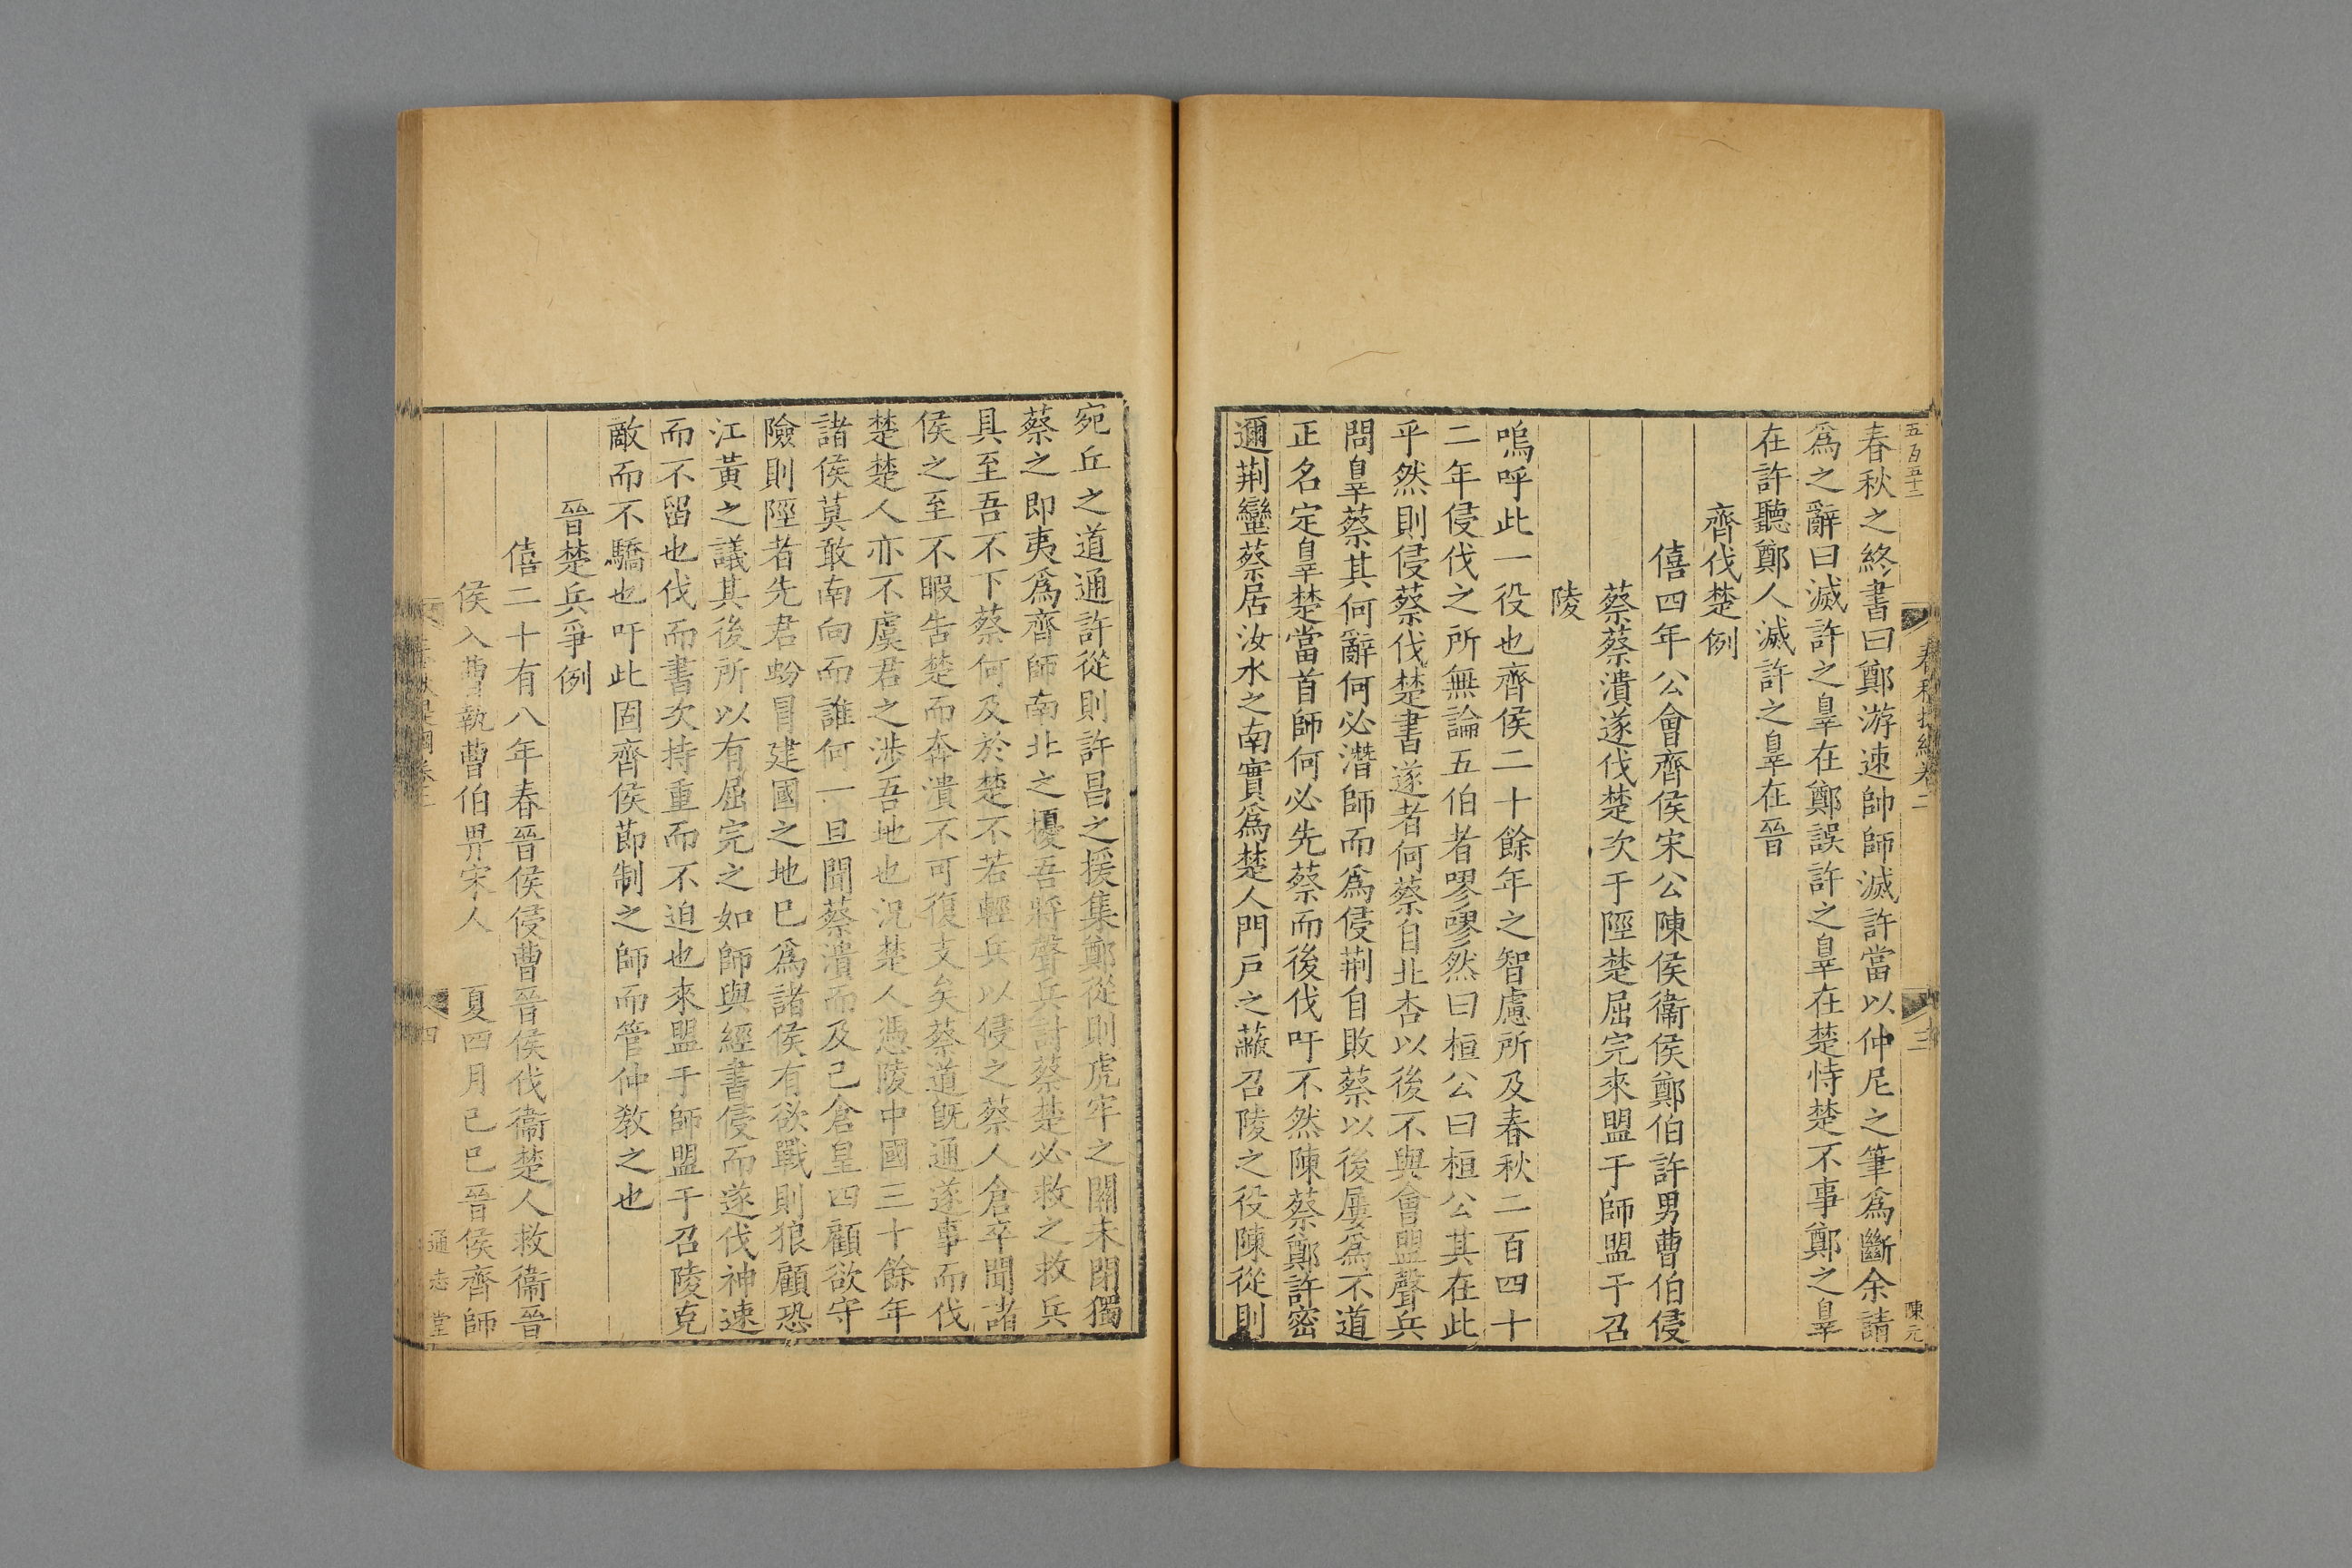 五百五十二
春秋之終書曰鄭游速帥師滅許當以仲尼之筆爲斷余請
爲之辭曰滅許之辠在鄭誤許之辠在楚恃楚不事鄭之辠
在許聽鄭人滅許之辠在晉
齊伐楚例
僖四年公會齊侯宋公陳侯衞侯鄭伯許男曹伯侵
蔡蔡潰遂伐楚次于陘楚屈完來盟于師盟于召
陵
嗚呼此一役也齊侯二十餘年之智慮所及春秋二百四十
二年侵伐之所無論五伯者嘐嘐然曰桓公曰桓公其在此
乎然則侵蔡伐楚書遂者何蔡自北杏以後不與會盟聲兵
問辠蔡其何辭何必潛師而爲侵荆自敗蔡以後屢爲不道
正名定辠楚當首師何必先蔡而後伐吁不然陳蔡鄭許密
邇荆蠻蔡居汝水之南實爲楚人門戸之蔽召陵之役陳從則
陳元
宛丘之道通許從則許昌之援集鄭從則虎牢之關未閉獨
蔡之即夷爲齊師南北之擾吾將聲兵討蔡楚必救之救兵
具至吾不下蔡何及於楚不若輕兵以侵之蔡人倉卒聞諸
侯之至不暇告楚而奔潰不可復支矣蔡道旣通遂事而伐
楚楚人亦不虞君之涉吾地也況楚人憑陵中國三十餘年
諸侯莫敢南向而誰何一旦聞蔡潰而及己倉皇四顧欲守
險則陘者先君蚡冒建國之地巳爲諸侯有欲戰則狼顧恐
江黃之議其後所以有屈完之如師與經書侵而遂伐神速
而不留也伐而書次持重而不迫也來盟于師盟于召陵克
敵而不驕也吁此固齊侯節制之師而管仲敎之也
晉楚兵爭例
僖二十有八年春晉侯侵曹晉侯伐衞楚人救衞晉
侯入曹執曹伯畀宋人　夏四月已巳晉侯齊師
四
通志堂